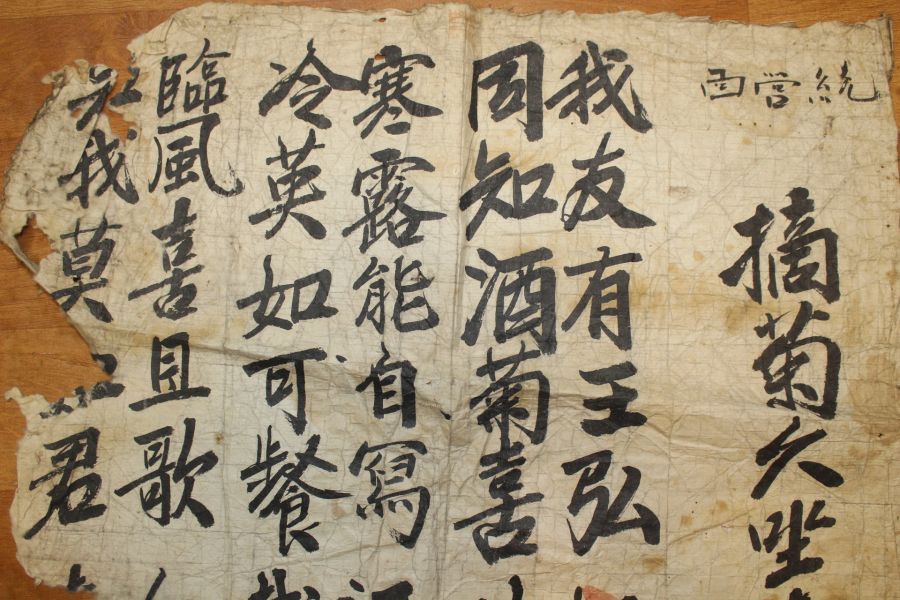 統營面
摘菊久坐
我友有王弘
固知酒菊喜
寒露能自寫
冷英如可餐
臨風喜且歌
我莫
君